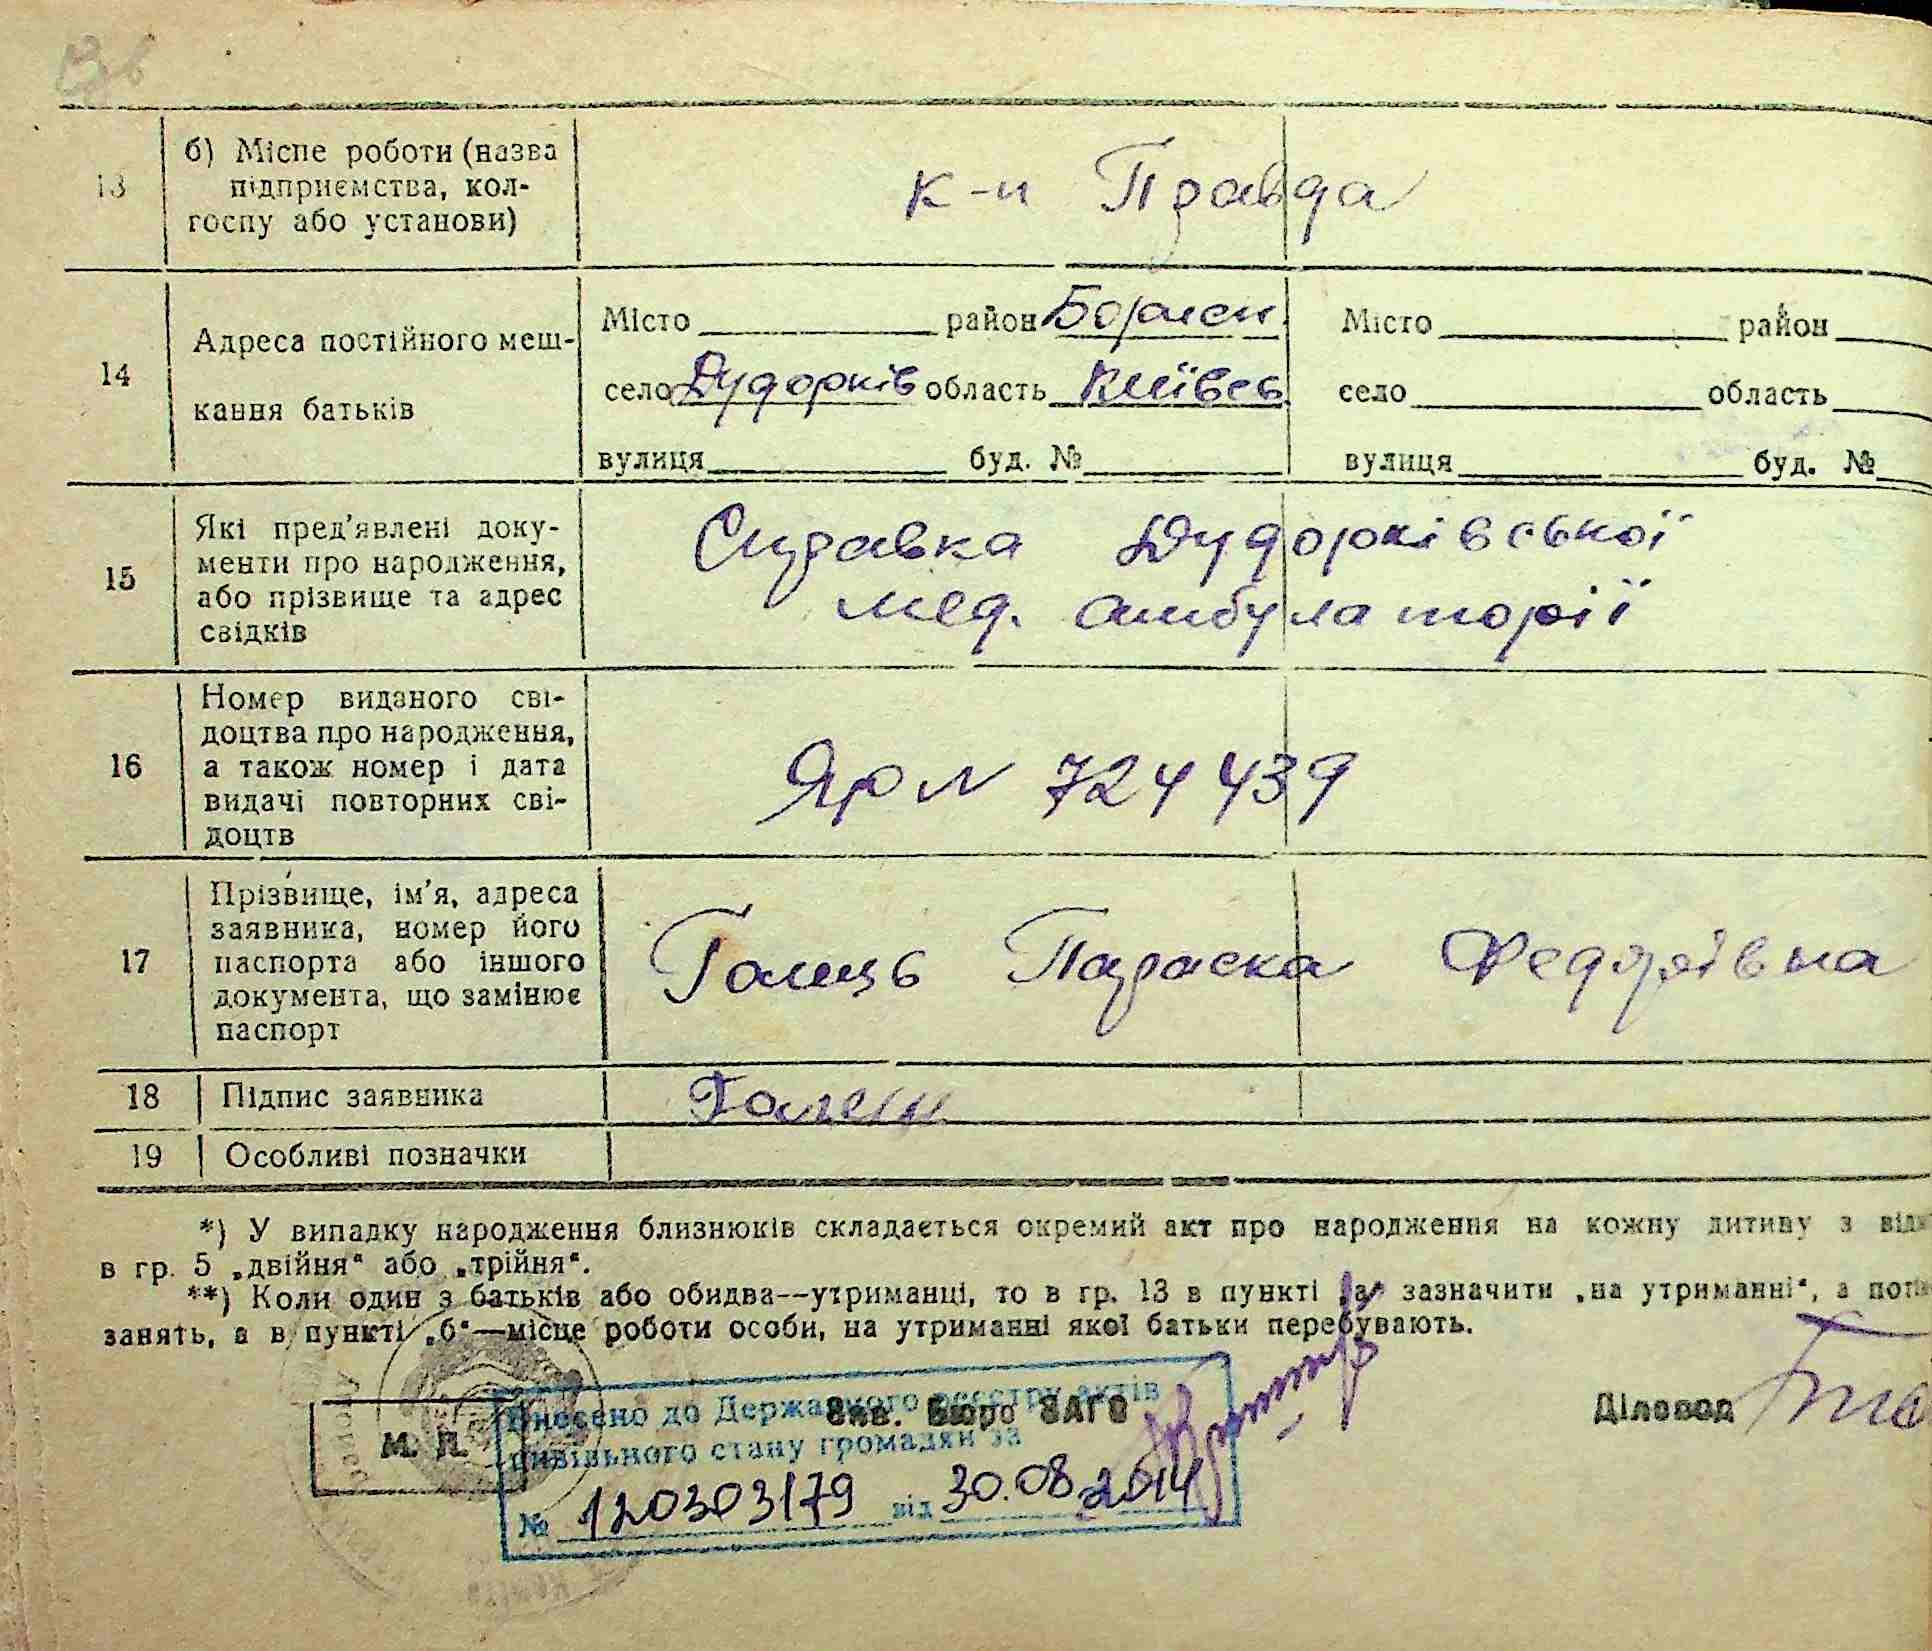 13
б) Місце роботи (назва
підприємства, кол-
госпу або установи)
к-п Правда
14
Адреса постійного меш-
кання батьків
Місто район Борисп.
село Дудорків область Київсь
вулиця буд. №
Місто район
село область
вулиця буд. №
15
Які пред'явлені доку-
менти про народження,
або прізвище та адрес
свідків
Справка Дудорківської
мед. амбулаторії
16
Номер виданого сві-
доцтва про народження,
а також номер і дата
видачі повторних сві-
доцтв
Яр № 724439
17
Прізвище, ім'я, адреса
заявника, номер його
паспорта або іншого
документа, що замінює
паспорт
Параска Федорівна
18
Підпис заявника
19
Особливі позначки
*) У випадку народження близнюків складається окремий акт про народження на кожну дитину з
в гр. 5 „двійня“ або „трійня“.
**) Коли один з батьків або обидва--утриманці, то в гр. 13 в пункті „а“ зазначити „на утриманні“, а
занять, а в пункті „б“—місце роботи особи, на утриманні якої батьки перебувають.
М. П.
Зав. Бюро ЗАГС
Діловод
Внесено до Державного реєстру актів
цивільного стану громадян за
№ 120303179 від 30.08.2014